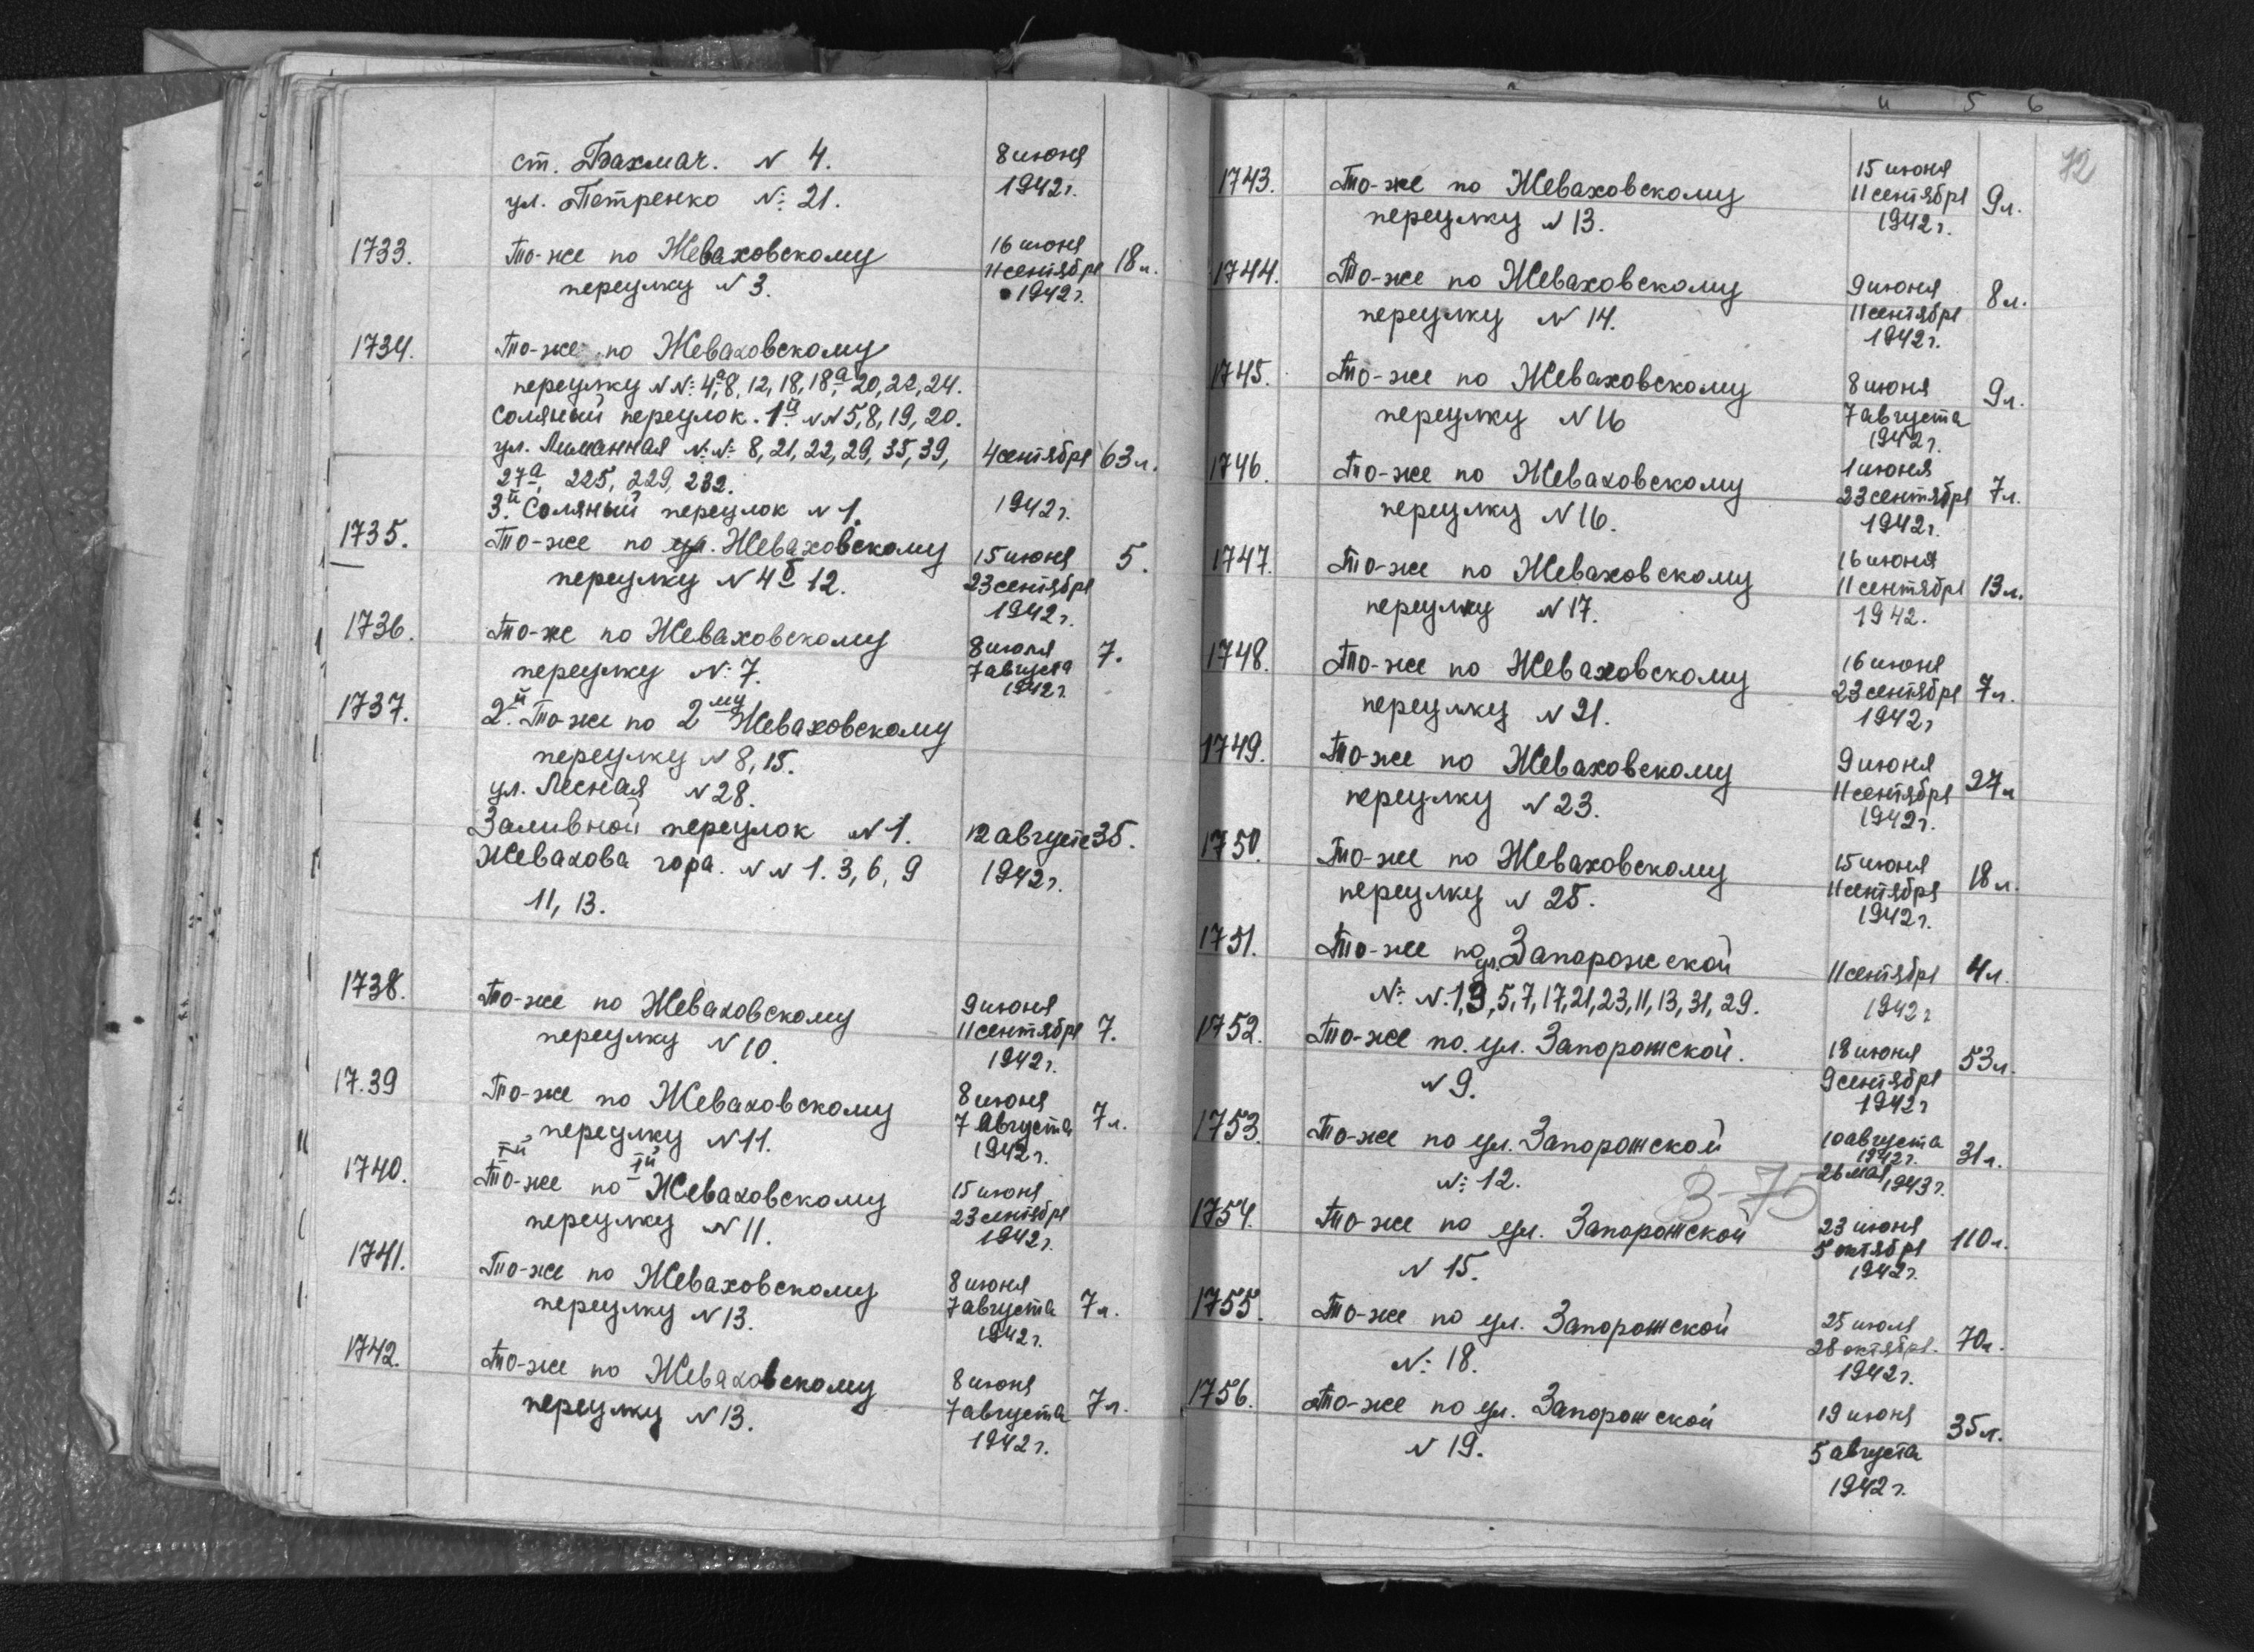 ст. Бахмач. N 4. 8 июня
ул. Петренко № 21. 1942 г.
1733. То-же по Жеваховскому 16 июня
переулку N 3. 11 сентября 18 л.
1942 г.
1734. То-же по Жеваховскому
переулку NN: 4а, 8, 12, 18, 18а, 20, 22, 24.
Соляный переулок. 1й NN 5, 8, 19, 20.
ул. Лиманная N:N: 8, 21, 22, 29, 35, 39, 4 сентября 63 л.
27а, 225, 229, 232.
3й Соляный переулок N 1. 1942 г.
1735. То-же по ул. Жеваховскому 15 июня 5.
переулку N 4б 12. 23 сентября
1942 г.
1736. То-же по Жеваховскому 8 июля 7.
переулку N: 7. 7 августа
1942 г.
1737. 2й То-же по 2му Жеваховскому
переулку N 8, 15.
ул. Лесная N 28.
Заливной переулок N 1. 12 августа 35.
Жевахова гора. NN 1. 3, 6, 9 1942 г.
11, 13.
1738. То-же по Жеваховскому 9 июня
переулку N 10. 11 сентября 7.
1942 г.
17.39 То-же по Жеваховскому 8 июня
переулку N 11. 7 августа 7 л.
1942 г.
Iй Iй
1740. То-же по Жеваховскому 15 июня
переулку N 11. 23 сентября
1942 г.
1741. То-же по Жеваховскому 8 июня
переулку N 13. 7 августа 7 л.
1942 г.
1742. То-же по Жеваховскому 8 июня
переулку N 13. 7 августа 7 л.
1942 г.
5 6
72
1743. То-же по Жеваховскому 15 июня
переулку N 13. 11 сентября 9 л.
1942 г.
1744. То-же по Жеваховскому 9 июня 8 л.
переулку N 14. 11 сентября
1942 г.
1745. То-же по Жеваховскому 8 июня 9 л.
переулку N 16 7 августа
1942 г.
1746. То-же по Жеваховскому 1 июня
переулку N 16. 23 сентября 7 л.
1942 г.
1747. То-же по Жеваховскому 16 июня
переулку N 17. 11 сентября 13 л.
1942.
1748. То-же по Жеваховскому 16 июня
переулку N 21. 23 сентября 7 л.
1942 г
1749. То-же по Жеваховскому 9 июня
переулку N 23. 11 сентября 27 л
1942 г.
1750. То-же по Жеваховскому 15 июня
переулку N 25. 11 сентября 18 л.
1942 г.
1751. То-же по ул. Запорожской 11 сентября 4 л.
N: N. 1, 3, 5, 7, 17, 21, 23, 11, 13, 31, 29. 1942 г
1752. То-же по. ул. Запорожской. 18 июня 53 л.
N 9. 9 сентября
1942 г
1753. То-же по ул. Запорожской 10 августа 1942 г. 31 л.
N: 12. 26 мая 1943 г.
З-75
1754. То-же по ул. Запорожской 23 июня
N 15. 5 октября 110 л.
1942 г.
1755. То-же по ул. Запорожской 25 июля
N: 18. 28 октября. 70 л.
1942 г.
1756. То-же по ул. Запорожской 19 июня 35 л.
N 19. 5 августа
1942 г.